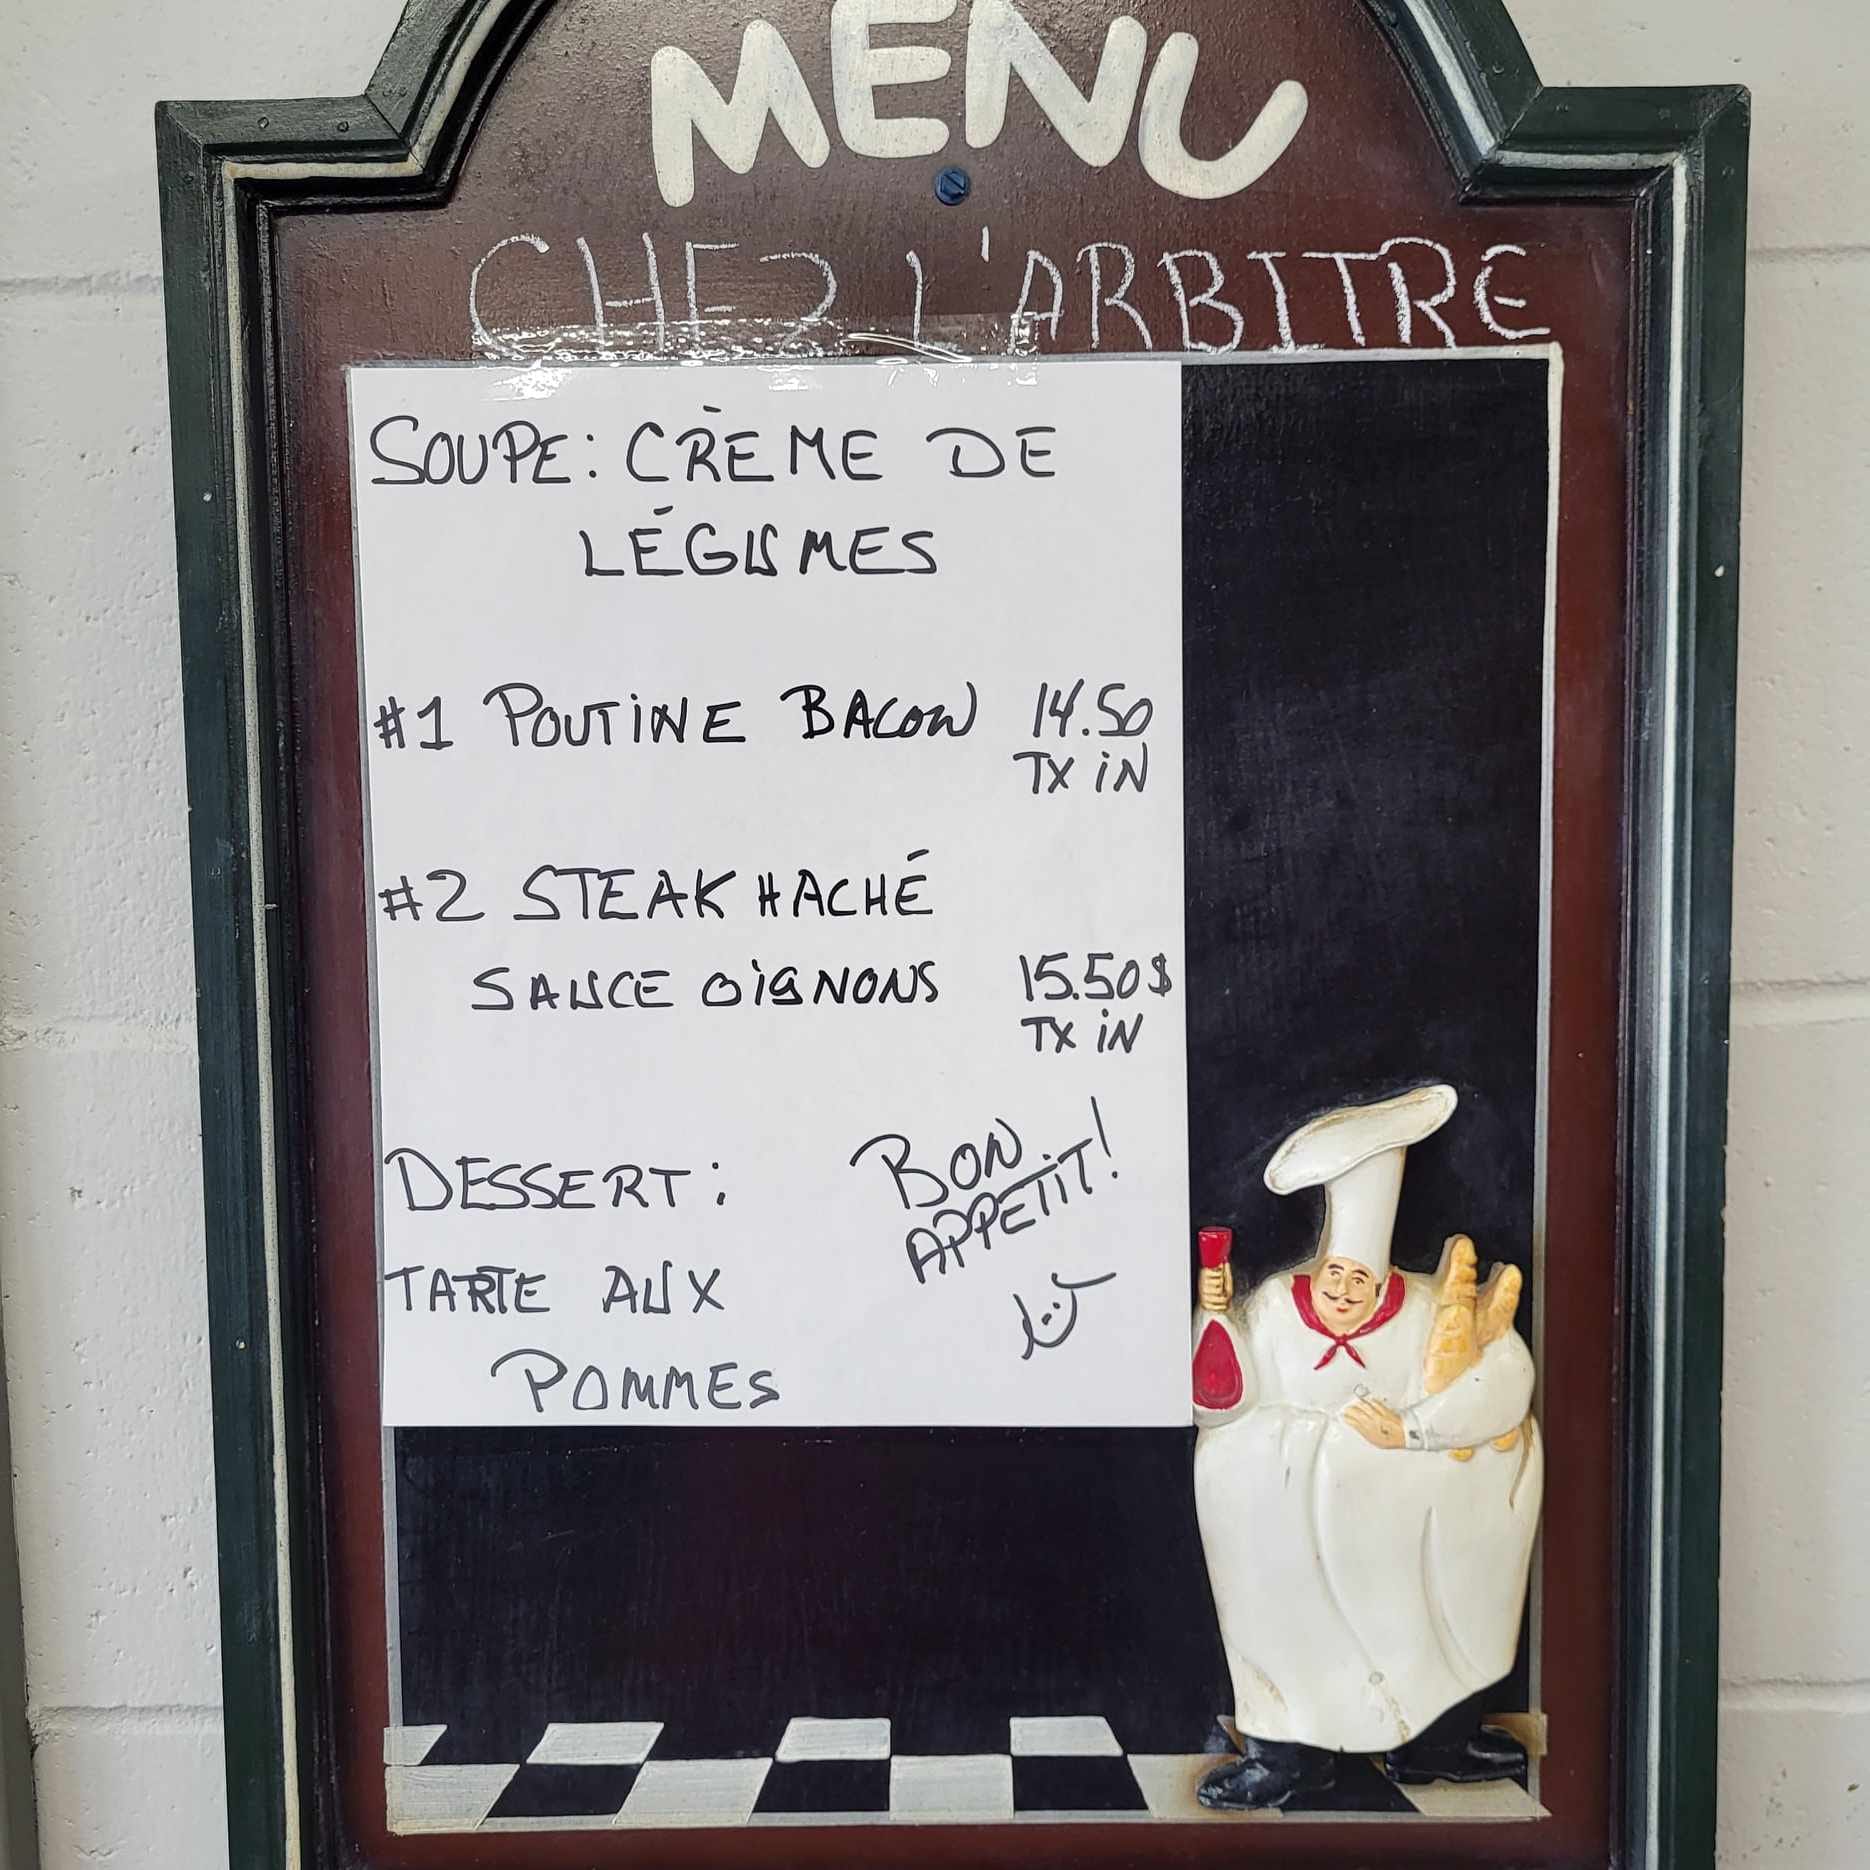 MENU
CHEZ L'ARBITRE
SOUPE: CRÈME DE
LÉGUMES
#1 POUTINE BACON 14.50
TX IN
#2 STEAK HACHÉ
SAUCE OIGNONS 15.50$
TX IN
DESSERT:
TARTE AUX
POMMES
BON
APPETIT!